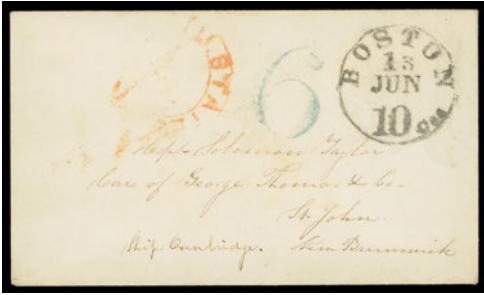 STA
6
BOSTON
13
JUN
10 cts
Capt Solomon Taylor
Care of George Thomas & Co-
St. John
Ship New Brunswick